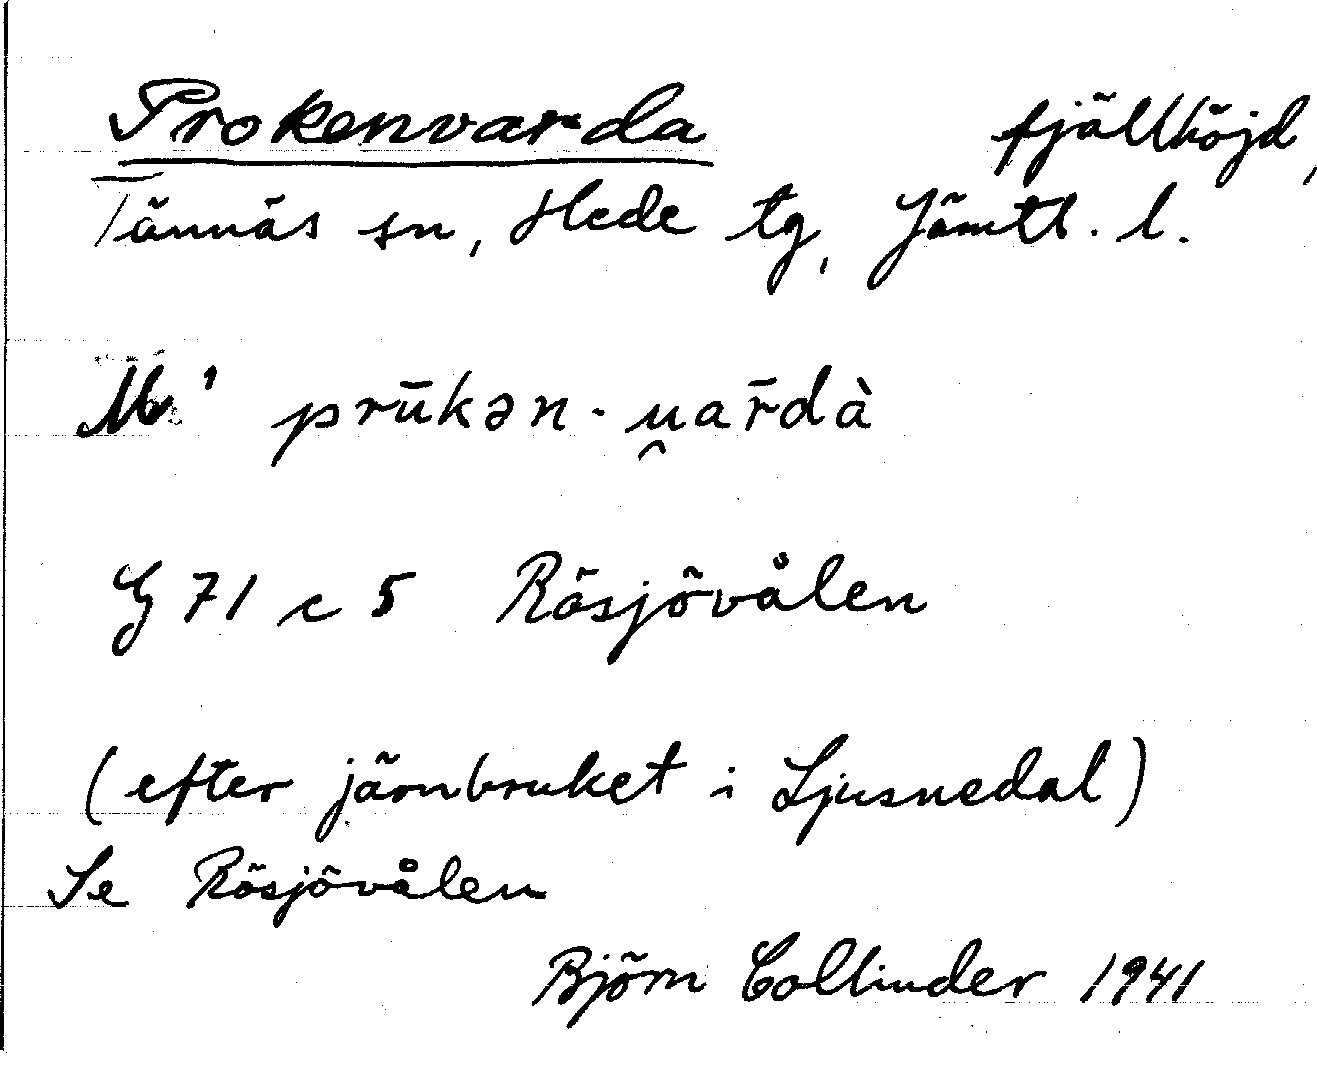 Prokenvarda fjällhöjd,
Tännäs sn, Hede tg, Jämtl. l.
prūkən-u̯ar̄dà
G 71 c 5 Rösjövålen
(efter järnbruket i Ljusnedal)
Se Rösjövålen
Björn Collinder 1941